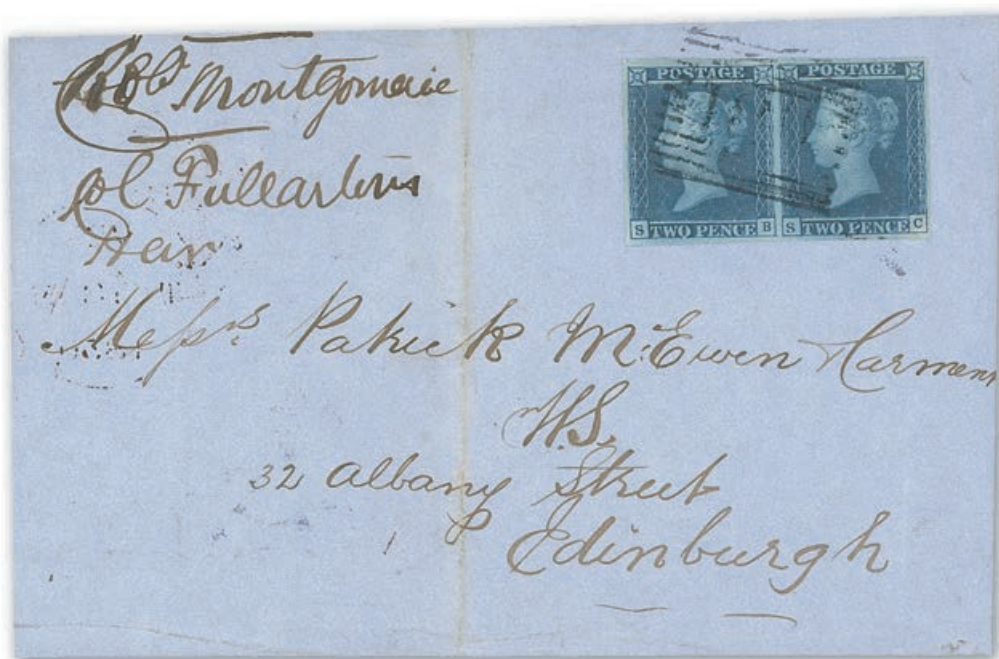 Robt Montgomerie
Col Fullartons
POSTAGE POSTAGE
S TWO PENCE B S TWO PENCE C
Messrs Patrick McEwen & Carment
W.S.
32 Albany Street
Edinburgh